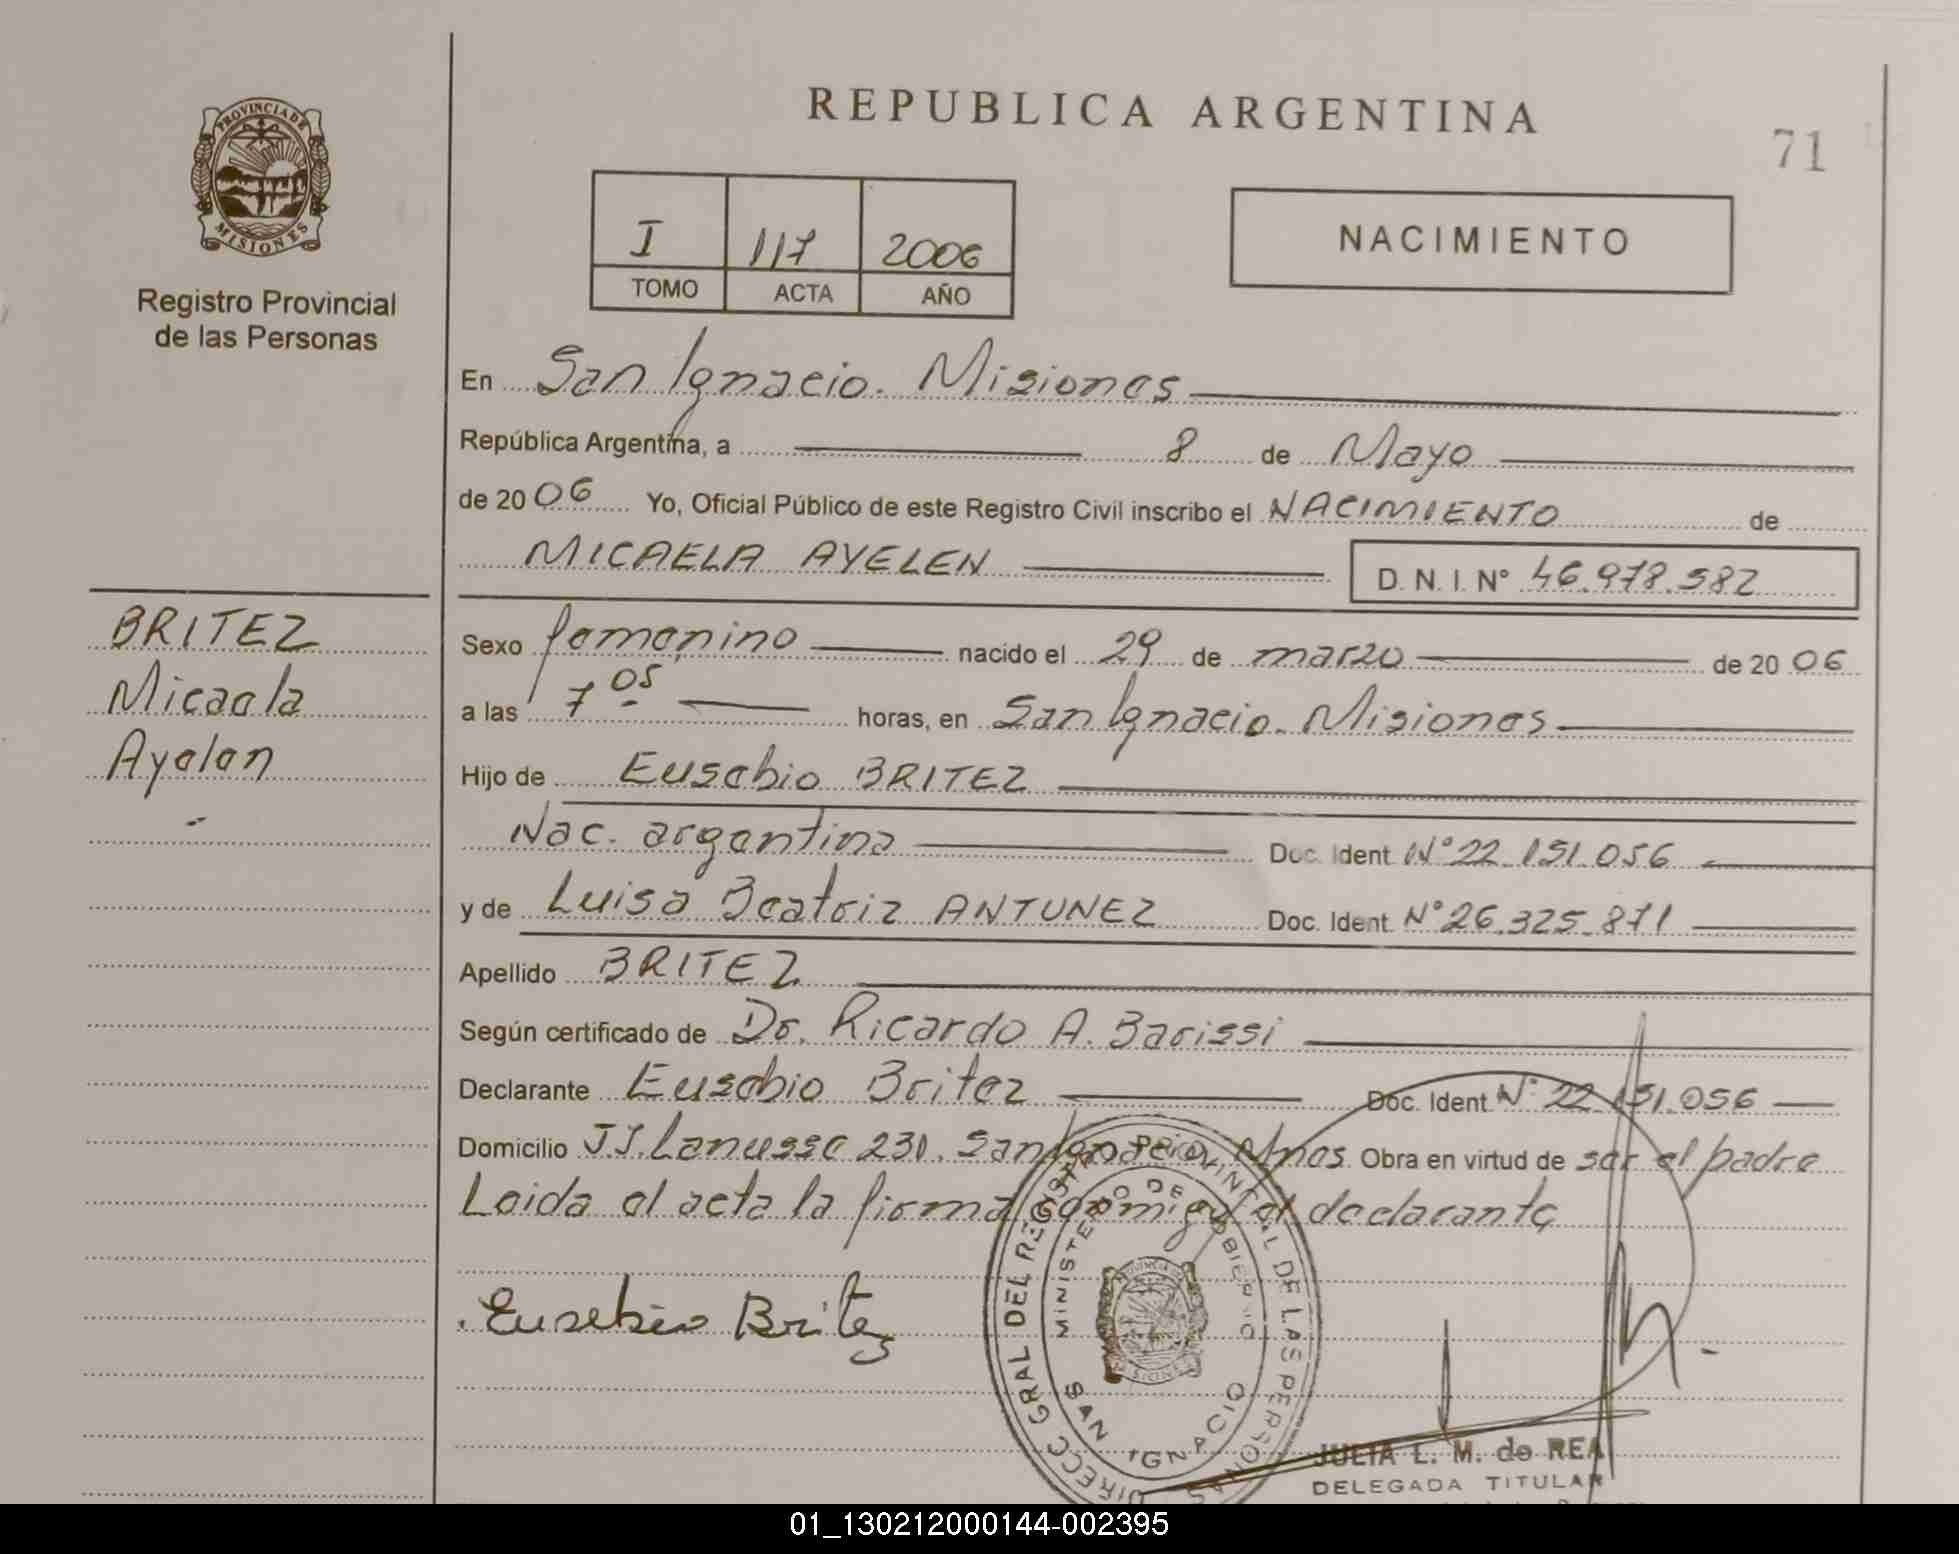 REPUBLICA ARGENTINA
71
PROVINCIA DE
MISIONES
Registro Provincial
de las Personas
I 117 2006
TOMO ACTA AÑO
NACIMIENTO
En San Ignacio. Misiones
República Argentina, a 8 de Mayo
de 2006 Yo, Oficial Público de este Registro Civil inscribo el NACIMIENTO de
MICAELA AYELEN D.N.I. N° 46.978.582
BRITEZ
Micaela
Ayelen
Sexo femenino nacido el 29 de marzo de 2006
a las 7 05 horas, en San Ignacio. Misiones
Hijo de Eusebio BRITEZ
Nac. argentina Doc. Ident. N° 22.151.056
y de Luisa Beatriz ANTUNEZ Doc. Ident. N° 26.325.871
Apellido BRITEZ
Según certificado de Dr. Ricardo A. Barissi
Declarante Eusebio Britez Doc. Ident. N° 22.151.056
Domicilio J.J. Lanusse 230. San Ignacio, Mnes. Obra en virtud de ser el padre
Leida el acta la firma conmigo el declarante
Eusebio Britez
DIRECC GRAL DEL REGISTRO PROVINCIAL DE LAS PERSONAS
MINISTERIO DE GOBIERNO
SAN IGNACIO
JULIA L. M. de REA
DELEGADA TITULAR
01_130212000144-002395